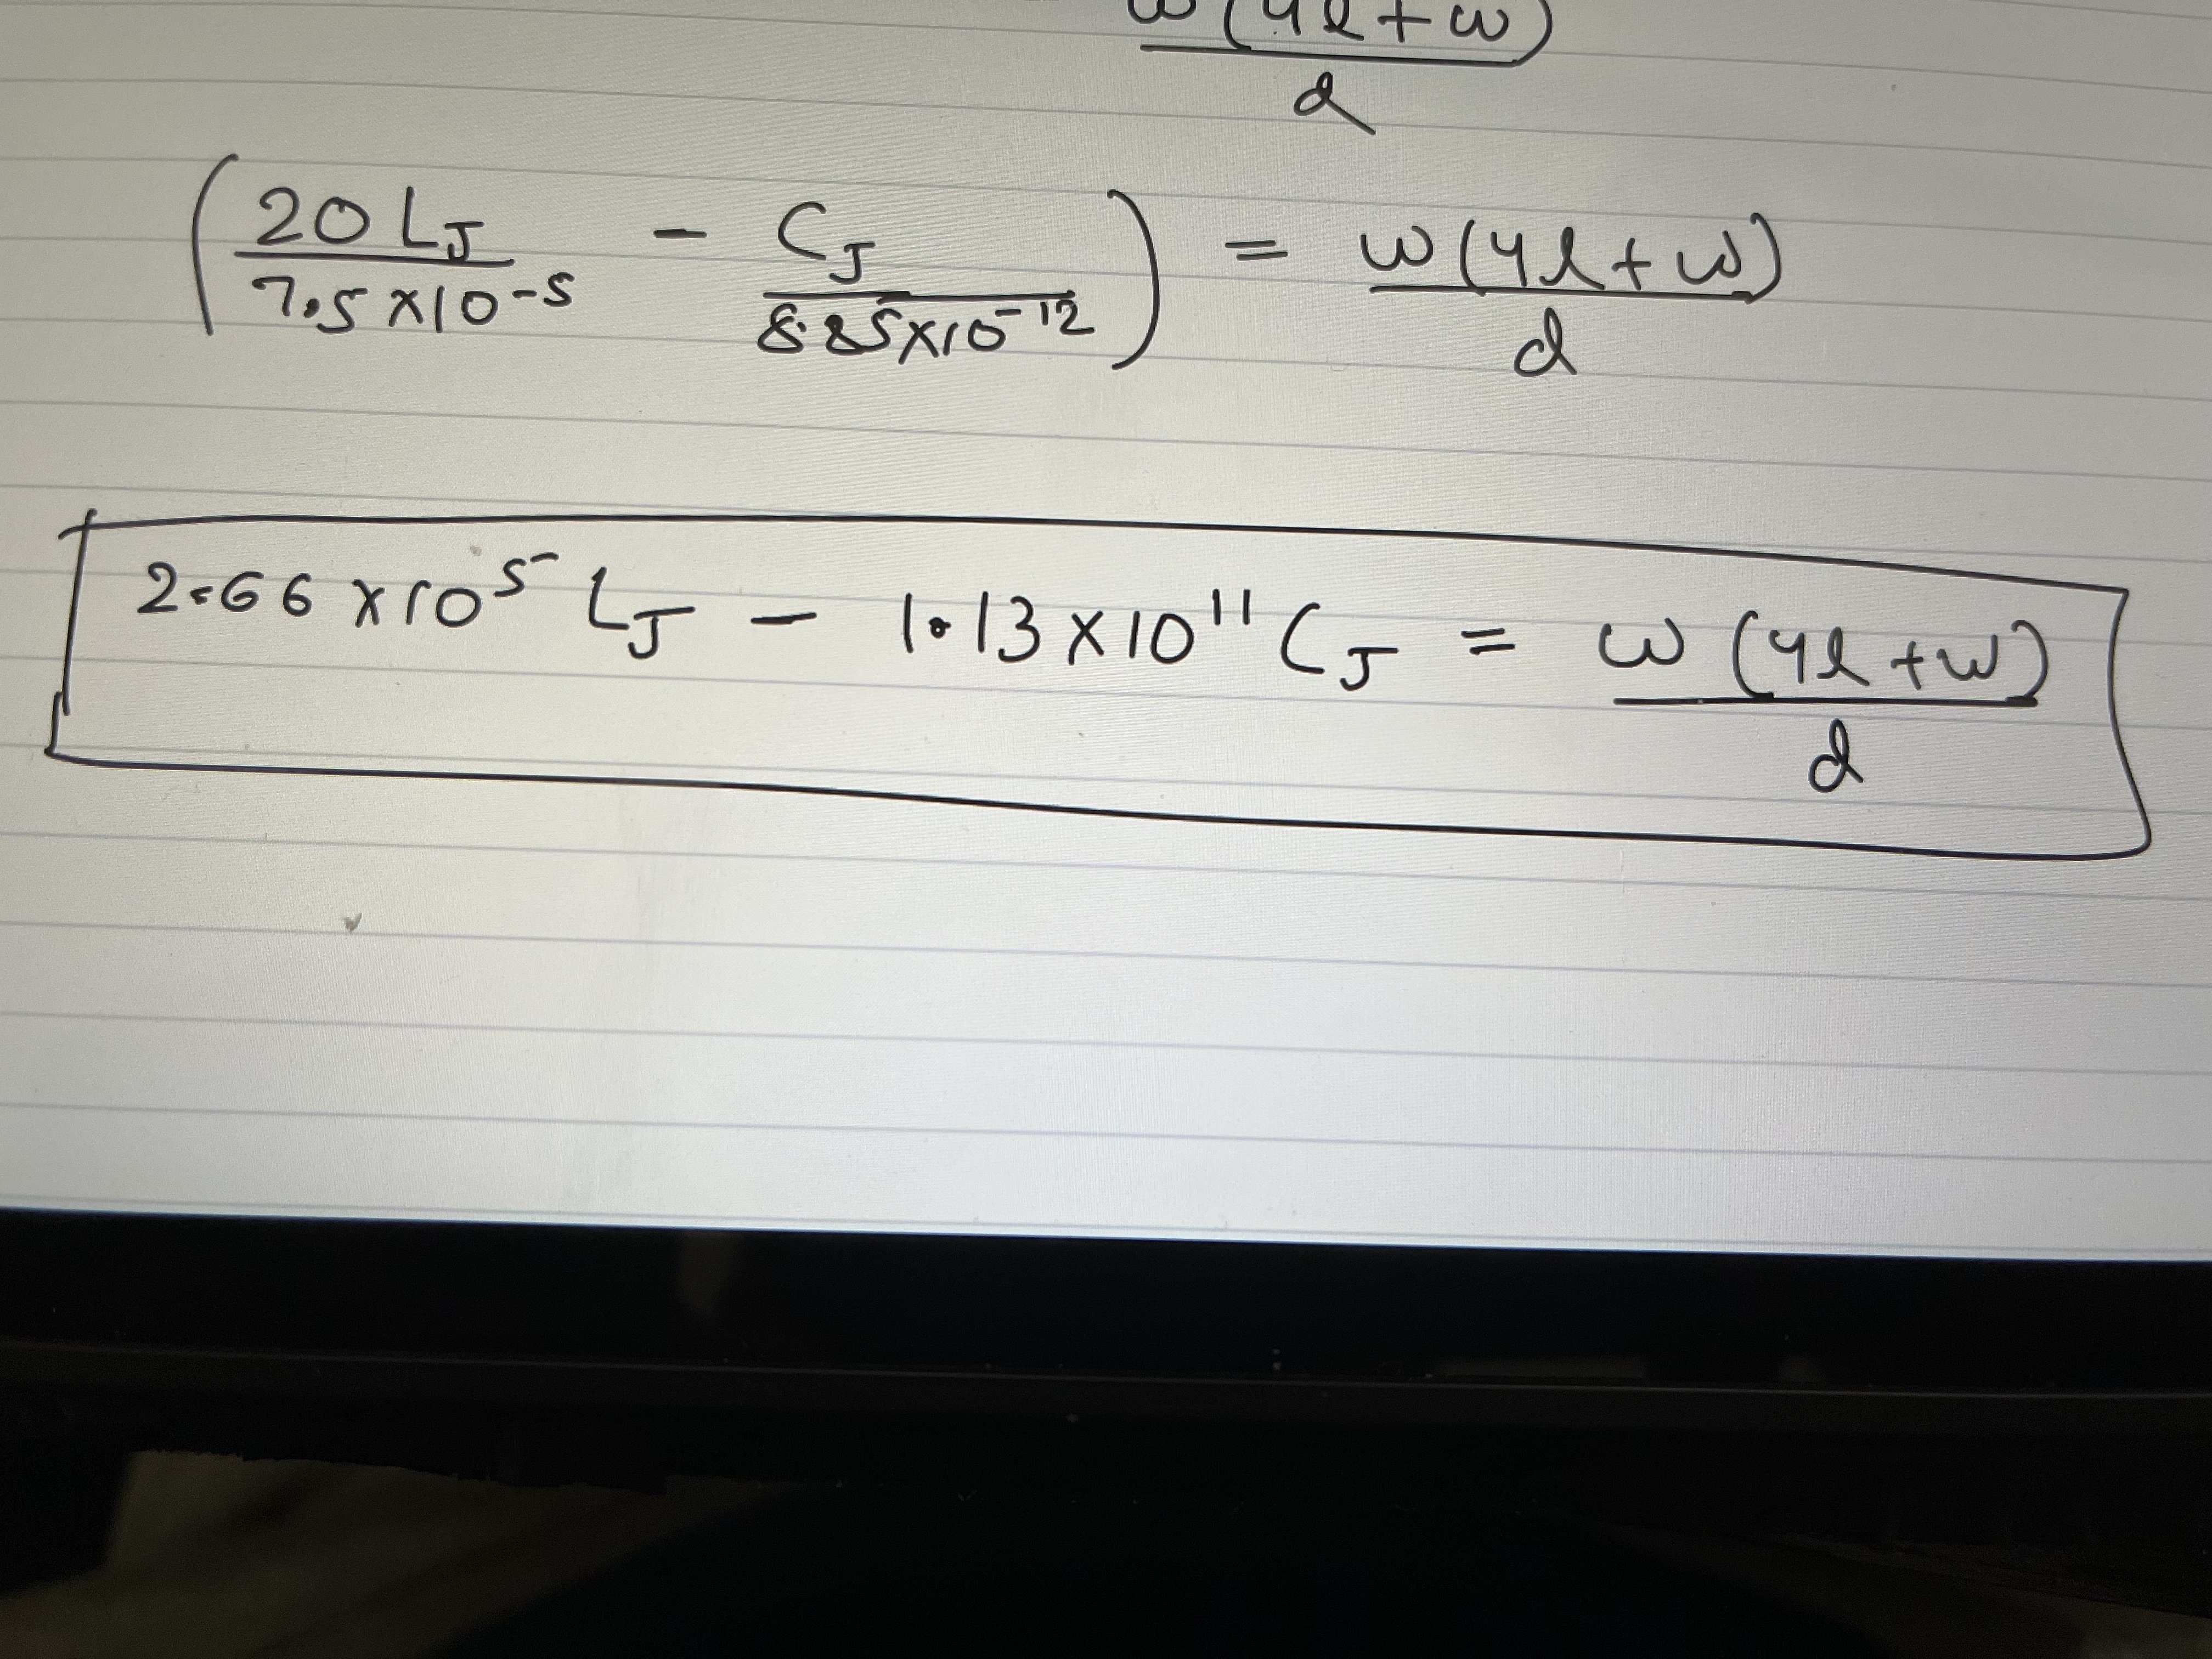 w(4l+w)/d
(20 L_J / 7.5×10^-5 - C_J / 8.85×10^-12) = w(4l+w)/d
2.66×10^5 L_J - 1.13×10^11 C_J = w(4l+w)/d